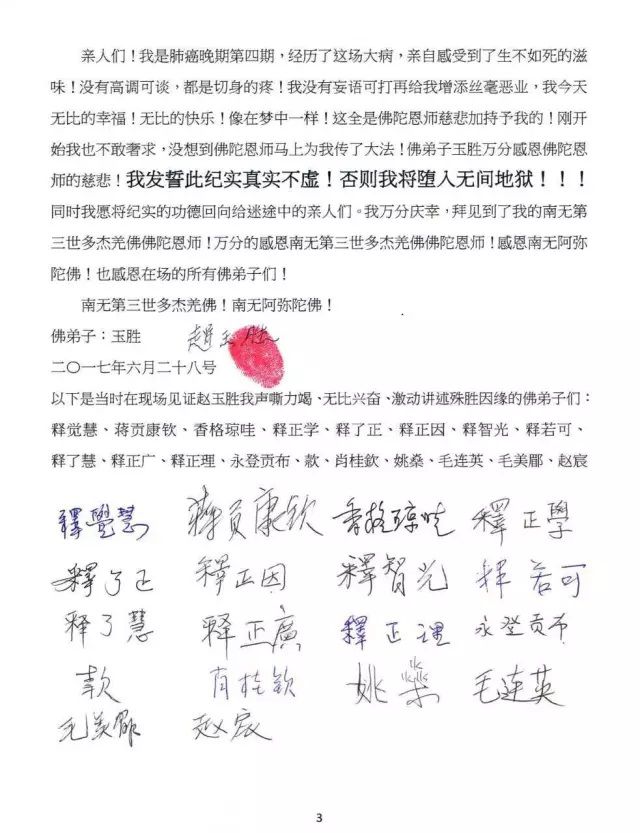 亲人们！我是肺癌晚期第四期，经历了这场大病，亲自感受到了生不如死的滋
味！没有高调可谈，都是切身的疼！我没有妄语可打再给我增添丝毫恶业，我今天
无比的幸福！无比的快乐！像在梦中一样！这全是佛陀恩师慈悲加持予我的！刚开
始我也不敢奢求，没想到佛陀恩师马上为我传了大法！佛弟子玉胜万分感恩佛陀恩
师的慈悲！我发誓此纪实真实不虚！否则我将堕入无间地狱！！！
同时我愿将纪实的功德回向给迷途中的亲人们。我万分庆幸，拜见到了我的南无第
三世多杰羌佛佛陀恩师！万分的感恩南无第三世多杰羌佛佛陀恩师！感恩南无阿弥
陀佛！也感恩在场的所有佛弟子们！
南无第三世多杰羌佛！南无阿弥陀佛！
佛弟子：玉胜 趙玉胜
二〇一七年六月二十八号
以下是当时在现场见证赵玉胜我声嘶力竭、无比兴奋、激动讲述殊胜因缘的佛弟子们：
释觉慧、蒋贡康钦、香格琼哇、释正学、释了正、释正因、释智光、释若可、
释了慧、释正广、释正理、永登贡布、款、肖桂欽、姚燊、毛连英、毛美郿、赵宸
釋覺慧 蒋贡康钦 香格琼哇 釋正學
釋了正 釋正因 釋智光 釋若可
释了慧 释正廣 釋正理 永登贡布
款 肖桂钦 姚燊 毛连英
毛美郿 赵宸
3